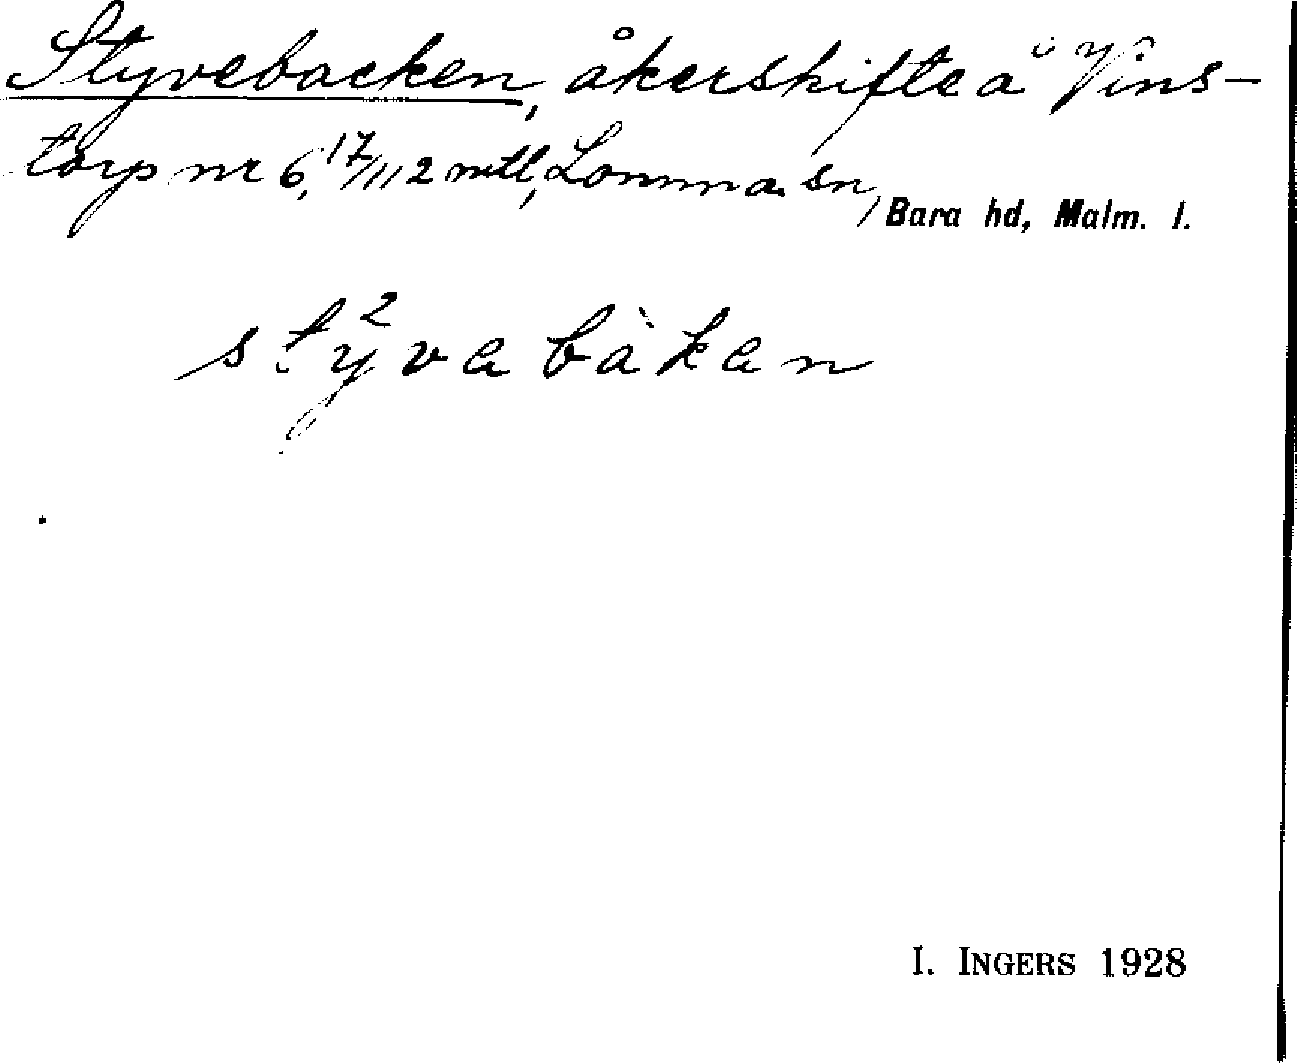 Styvebacken, åkerskifte å Vins-
torp nr 6, 17/112 mtl, Lomma sn, Bara hd, Malm. l.
stỳ²vabàkan
I. INGERS 1928